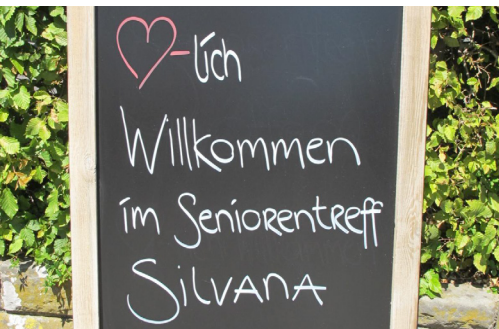 ♡-lich
Willkommen
im Seniorentreff
Silvana